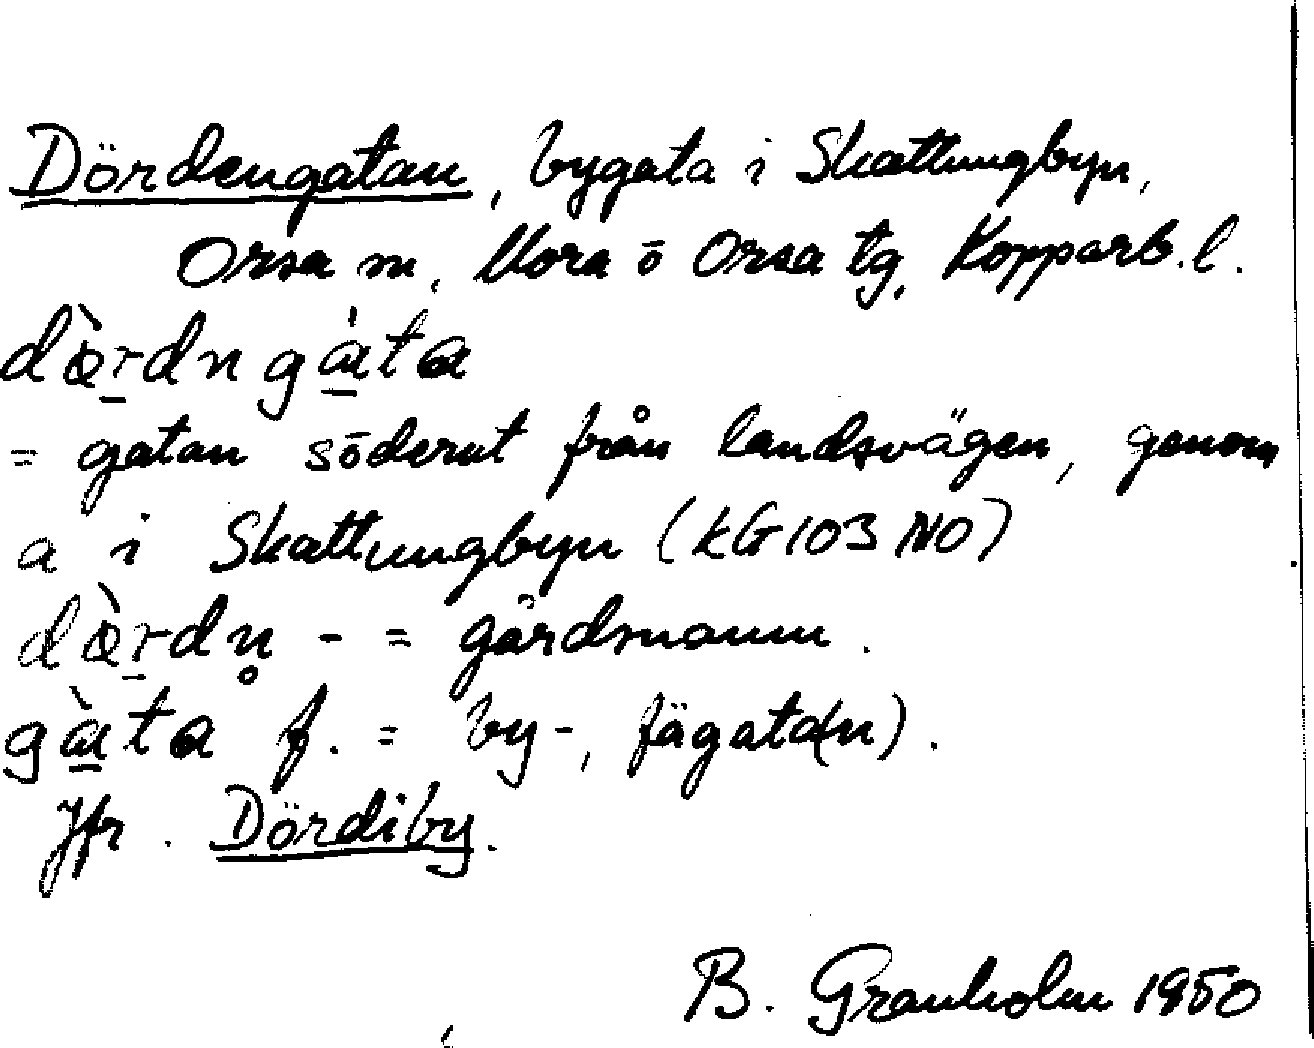 Dördengatan, bygata i Skattungbyn,
Orsa sn, Mora o Orsa tg, Kopparb. l.
dœ̀rdngàta
= gatan söderut från landsvägen, genom
a i Skattungbyn (kG 103 NO)
dœ̀rdn̥ - = gårdsnamn.
gàta f. = by-, fägata(n).
Jfr. Dördiby.
B. Granholm 1950